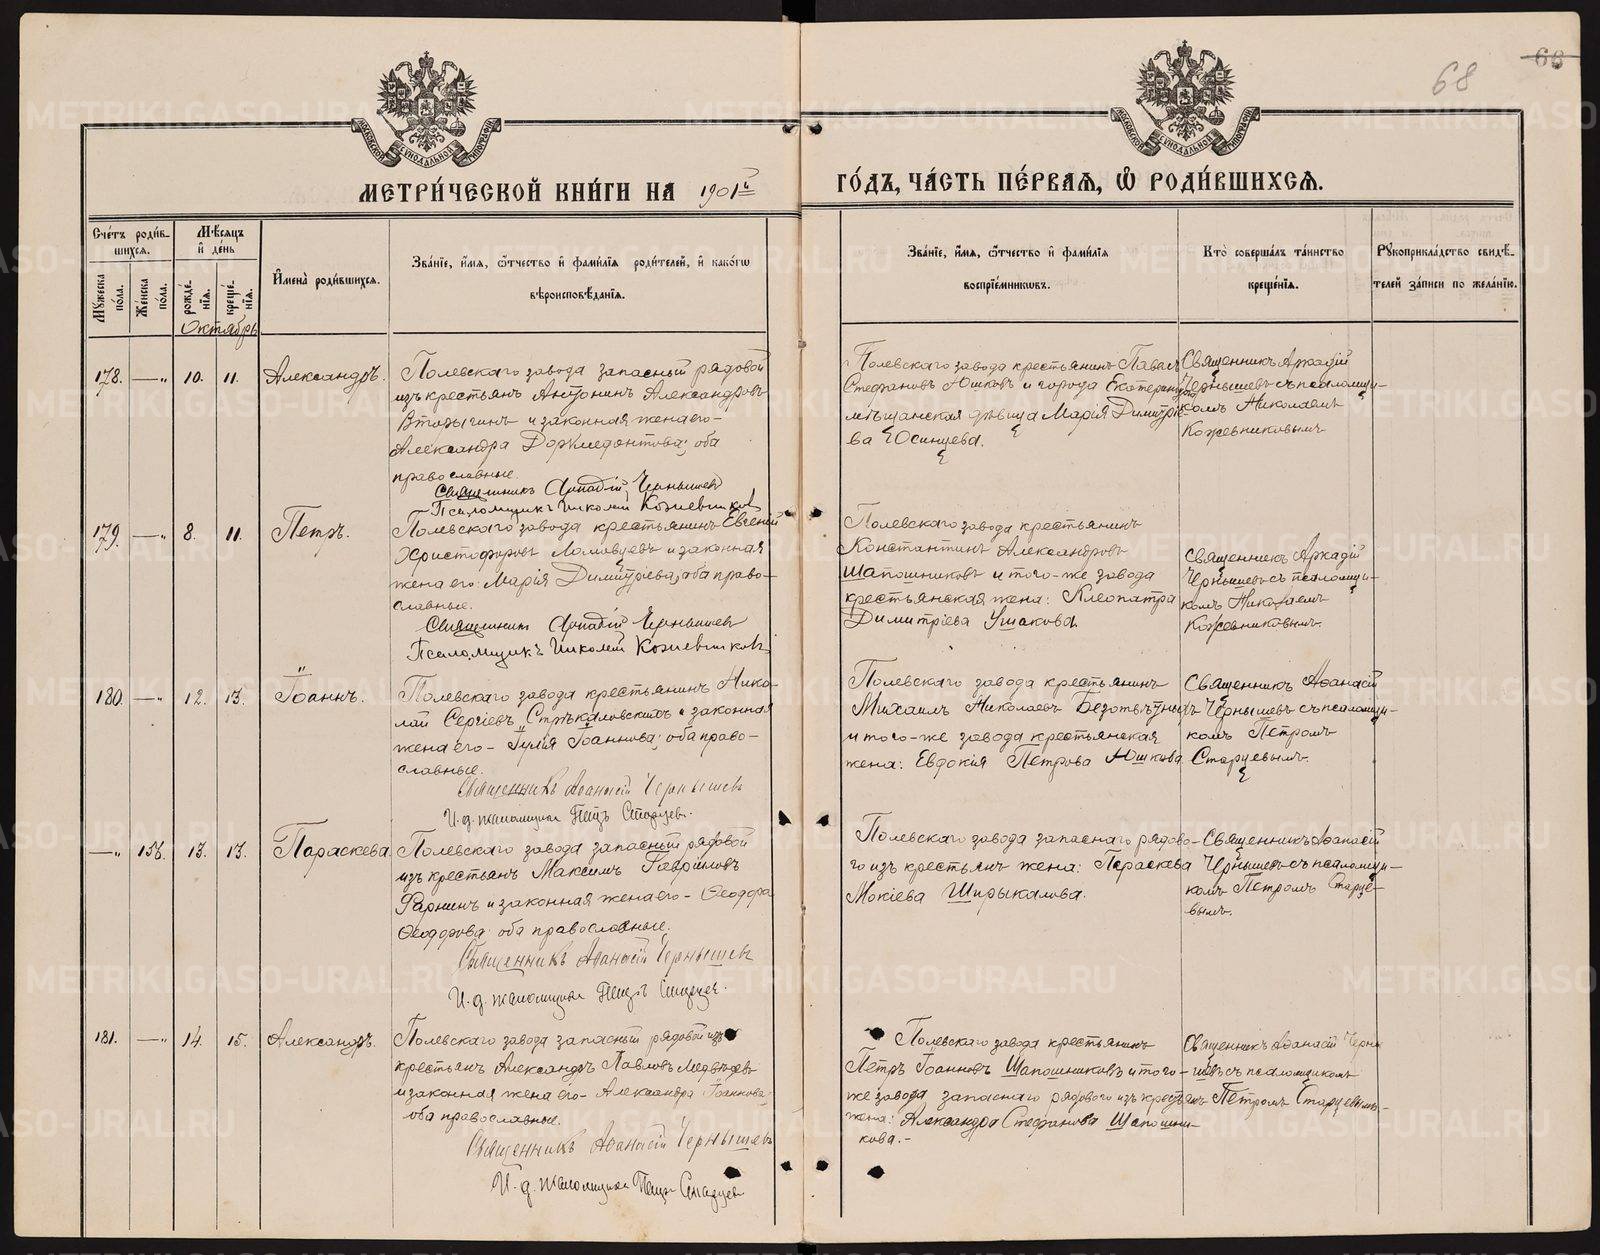 68
МЕТРИ́ЧЕСКОЙ КНИ́ГИ НА 1901й ГО́ДЪ, ЧА́СТЬ ПЕ́РВАѦ, Ѡ҆ РОДИ́ВШИХСѦ.
Сче́тъ роди́в-
шихсѧ.
Мꙋ́жеска по́ла.
Же́нска по́ла.
Мѣ́сѧцъ
и҆ де́нь
рожде́-
нїѧ.
креще́-
нїѧ.
Октябрь
И҆мена̀ роди́вшихсѧ.
Зва́нїе, и҆́мѧ, ѻ҆́тчество и҆ фами́лїѧ роди́телей, и҆ како́гѡ
вѣроисповѣ́данїѧ.
Зва́нїе, и҆́мѧ, ѻ҆́тчество и҆ фами́лїѧ
воспрїе́мникѡвъ.
Кто̀ соверша́лъ та́инство
креще́нїѧ.
Рꙋкоприкла́дство свидѣ́-
телей за́писи по жела́нїю.
178. —„ 10. 11. Александръ.
Полевскаго завода запасный рядовой
изъ крестьянъ Антонинъ Александровъ
и законная жена его-
Александра Доримедонтова; оба
православные.
Священникъ Аркадій Чернышев
Псаломщикъ Николай Кожевников
Полевскаго завода крестьянинъ Павелъ
Стефановъ Юшковъ и города Екатеринбурга
мѣщанская дѣвица Марія Димитріе-
ва Осинцева.
Священникъ Аркадій
Чернышевъ съ псаломщи-
комъ Николаемъ
Кожевниковымъ
179. —„ 8. 11. Петръ.
Полевскаго завода крестьянинъ Евгеній
Христофоровъ Ломовцевъ и законная
жена его: Марія Димитріева; оба право-
славные.
Священникъ Аркадій Чернышев
Псаломщикъ Николай Кожевниковъ
Полевскаго завода крестьянинъ
Константинъ Александровъ
Шапошниковъ и того-же завода
крестьянская жена: Клеопатра
Димитріева Ушакова.
Священникъ Аркадій
Чернышевъ съ псаломщи-
комъ Николаемъ
Кожевниковымъ.
180. —„ 12. 13. Іоаннъ.
Полевскаго завода крестьянинъ Нико-
лай Сергіевъ Стрѣкаловскихъ и законная
жена его- Іулія Іоаннова; оба право-
славные.
Священникъ Аѳанасій Чернышевъ
И. д. псаломщика Петръ Старцев.
Полевскаго завода крестьянинъ
Михаилъ Николаевъ Безотвѣтныхъ
и того-же завода крестьянская
жена: Евдокія Петрова Юшкова
Священникъ Аѳанасій
Чернышевъ съ псаломщи-
комъ Петромъ
Старцевымъ.
—„ 138. 13. 13. Параскева.
Полевскаго завода запасный рядовой
изъ крестьянъ Максимъ Гавриловъ
и законная жена его- Ѳеодора
Ѳеодорова оба православные.
Священникъ Аѳанасій Чернышев
И. д. псаломщика Петръ Старцев.
Полевскаго завода запаснаго рядово-
го изъ крестьянъ жена: Параскева
Мокіева Ширыкалова.
Священникъ Аѳанасій
Чернышевъ съ псаломщи-
комъ Петромъ Старце-
вымъ.
181. —„ 14. 15. Александръ.
Полевскаго завода запасный рядовой изъ
крестьянъ Александръ Павловъ Медвѣдевъ
и законная жена его- Александра Іоаннова
оба православные.
Священникъ Аѳанасій Чернышевъ
И. д. псаломщика Петръ Старцев
Полевскаго завода крестьянинъ
Петръ Іоанновъ Шапошниковъ и того-
же завода запаснаго рядового изъ крестьянъ
жена: Александра Стефанова Шапошни-
кова.-
Священникъ Аѳанасій Черны-
шевъ съ псаломщикомъ
Петромъ Старцевымъ.
METRIKI.GASO-URAL.RU